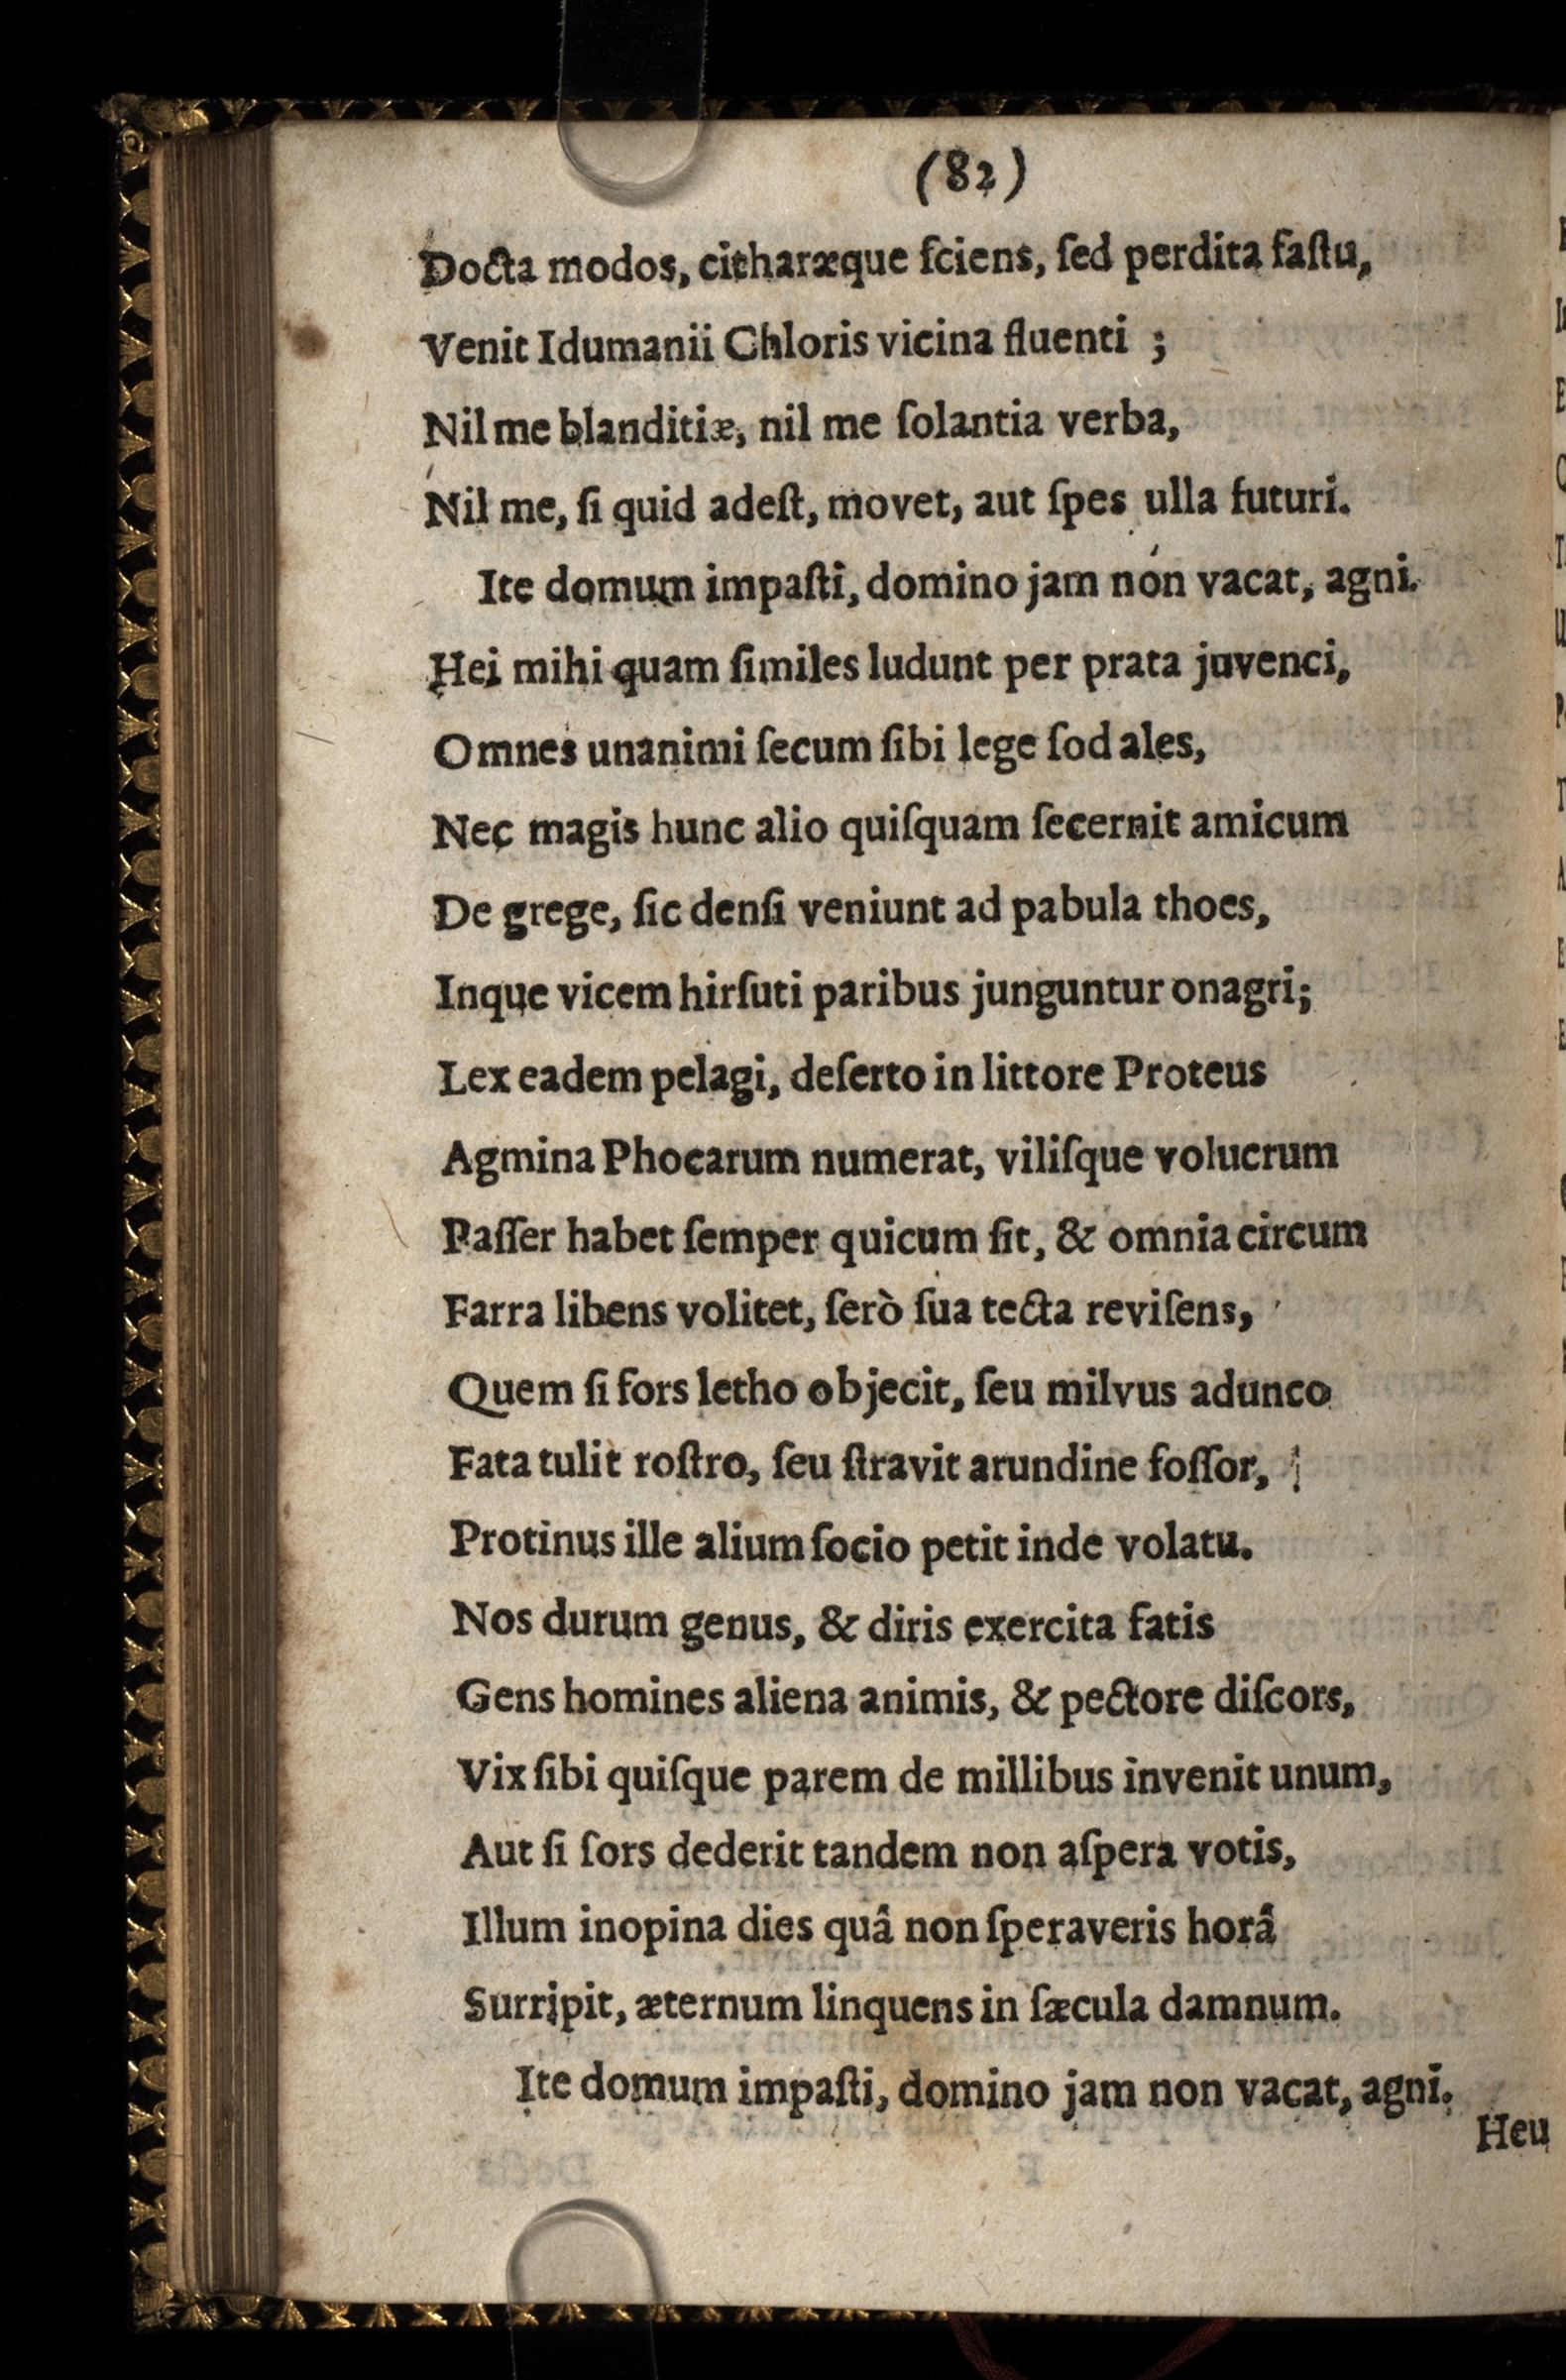 (82)
Docta modos, citharæque ſciens, ſed perdita faſtu,
Venit Idumanii Chloris vicina fluenti ;
Nil me blanditiæ, nil me ſolantia verba,
Nil me, ſi quid adeſt, movet, aut ſpes ulla futuri.
Ite domum impaſti, domino jam non vacat, agni.
Hei mihi quam ſimiles ludunt per prata juvenci,
Omnes unanimi ſecum ſibi lege ſod ales,
Nec magis hunc alio quiſquam ſecernit amicum
De grege, ſic denſi veniunt ad pabula thoes,
Inque vicem hirſuti paribus junguntur onagri;
Lex eadem pelagi, deſerto in littore Proteus
Agmina Phocarum numerat, viliſque volucrum
Paſſer habet ſemper quicum ſit, & omnia circum
Farra libens volitet, ſerò ſua tecta reviſens,
Quem ſi fors letho objecit, ſeu milvus adunco
Fata tulit roſtro, ſeu ſtravit arundine foſſor,
Protinus ille alium ſocio petit inde volatu.
Nos durum genus, & diris exercita fatis
Gens homines aliena animis, & pectore diſcors,
Vix ſibi quiſque parem de millibus invenit unum,
Aut ſi ſors dederit tandem non aſpera votis,
Illum inopina dies quâ non ſperaveris horâ
Surripit, æternum linquens in ſæcula damnum.
Ite domum impaſti, domino jam non vacat, agni.
Heu